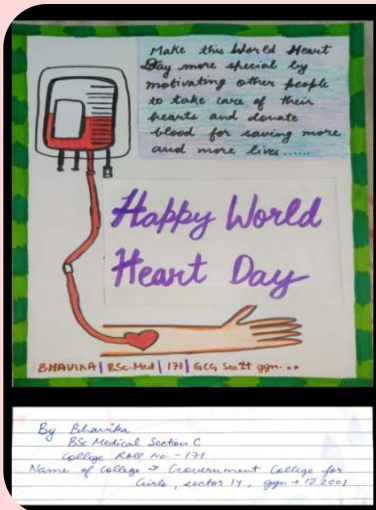 Make this World Heart
Day more special by
motivating other people
to take care of their
hearts and donate
blood for saving more
and more lives......
Happy World
Heart Day
BHAVIKA | BSc. Med | 171 | GCG Sec 14 ggn...
By Bhavika
BSc Medical Section C
College Roll No. - 171
Name of college → Government College for
Girls, sector 14, ggn → 122001